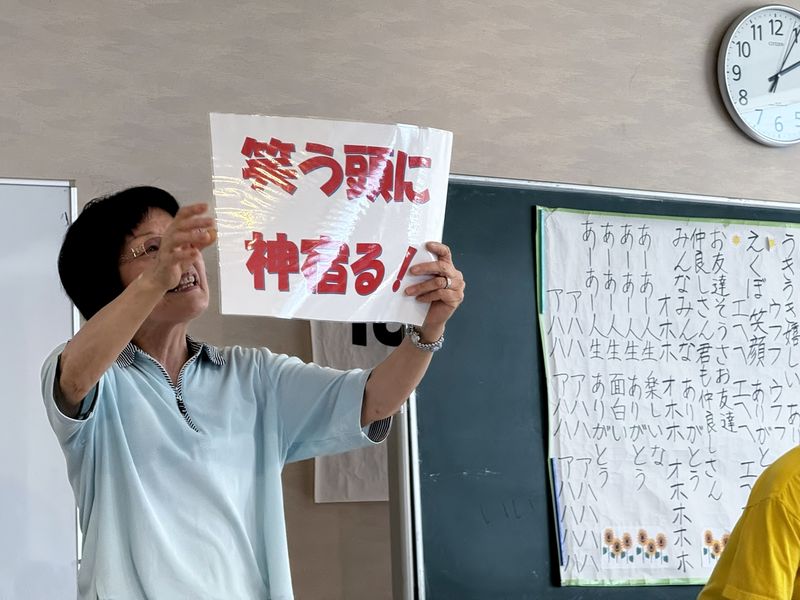 笑う頭に
神宿る!
うきうき嬉しい
ウフフ ウフフ
えくぼ笑顔 ありがとう
エヘヘ エヘヘ エ
お友達そうさお友達
仲良しさん君も仲良しさん
みんなみんな ありがとう
オホホ オホホ オホホホホ
あ～あ～人生楽しいな
あ～あ～人生ありがとう
あ～あ～人生面白い
あ～あ～人生ありがとう
アハハ アハハ アハハハハ
アハハ アハハ アハハハハ
12
11
10
9
8
7
6
5
1
2
CITIZEN